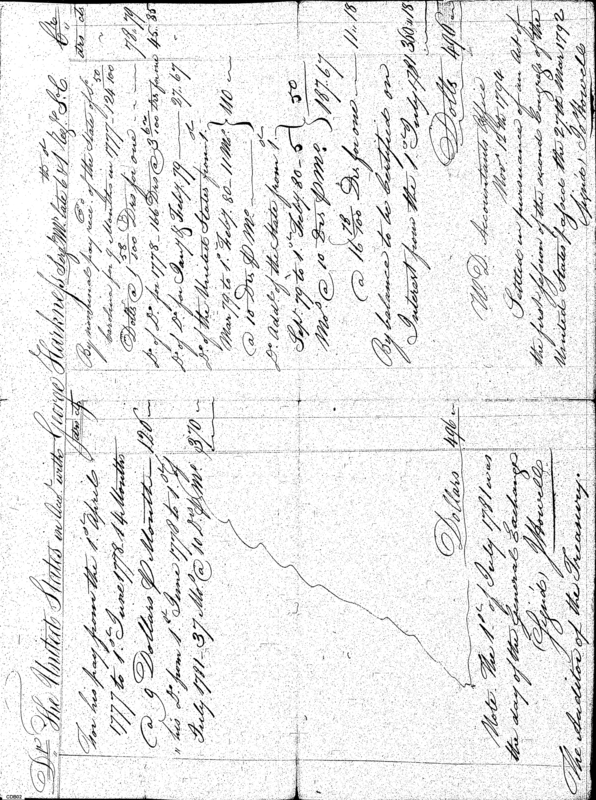 Dr. The United States in acct. with George Harkness Sergt. Mr. late 6th & 1st Regt. S.C. Cr.
drs cts
For his pay from the 1st April
1777 to 1st June 1778 14 Months
@ 9 Dollars P Month — 126 "
" his Do. from 1st June 1778 to 1st of
July 1781 - 37 Mos. @ 10 Ds. P Mo. 370 "
Dollars 496 "
Note. The 1st of July 1781 was
the day of the General Exchange
Signd, J Howell
The Auditor of the Treasury.
drs cts
By nominal pay rec. of the State of So.
Carolina for 9 Months in 1777 - 124 50/100
Dolls @ 1 58/100 Drs for one — 78.79
Do. of Do. for 1778. 166 Drs @ 3 /100 drs for one 45.35
Do. of Do. for Jany & Feby. 79 — 27.67
Do. of the United States from 1st
Mar. 79 to 1st Feby. 80 - 11 Mos. } 110 "
@ 10 Drs. P Mo.
Do. Addl. of the State from 1st
Sepr. 79 to 1st Feby. 80 - 5 } 50
Mos. @ 10 Drs P Mo. } 187.67
@ 16 78/100 Drs. for one — 11.18
By balance to be certified on
Interest from the 1st July 1781 360.18
Dolls 496 "
W. D. Accountants Office
Novr. 1794
Settled in pursuance of an act of
the first session of the second Congress of the
United States passed the 27th Mar. 1792
Signd, J. Howell
CDB02